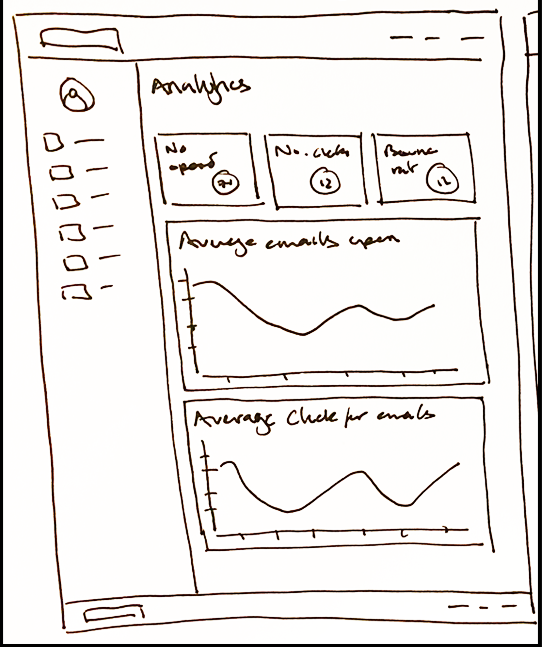 Analytics
No
opened
No. clicks
12
Bounce
rate
12
Average emails open
Average Click per emails